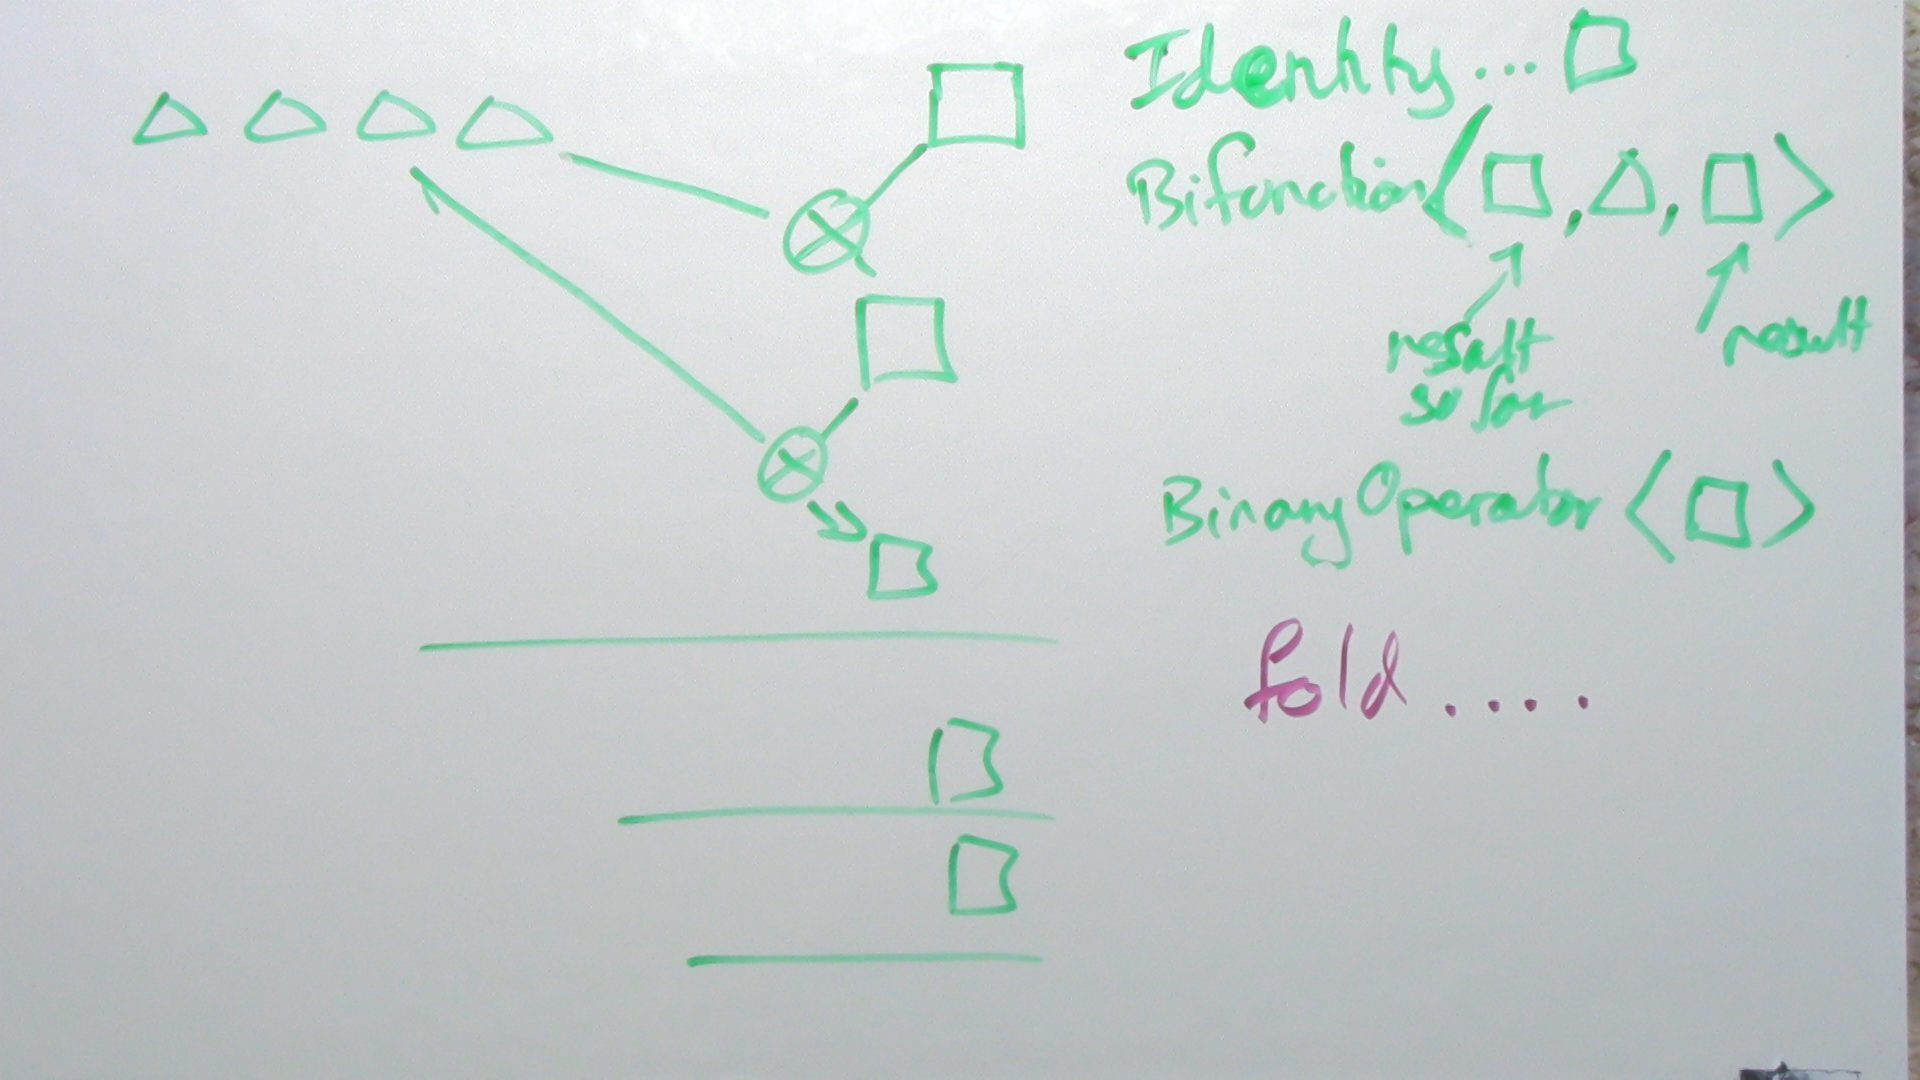 Identity... □
Bifunction<□,△,□>
result
so far
result
BinaryOperator<□>
fold....